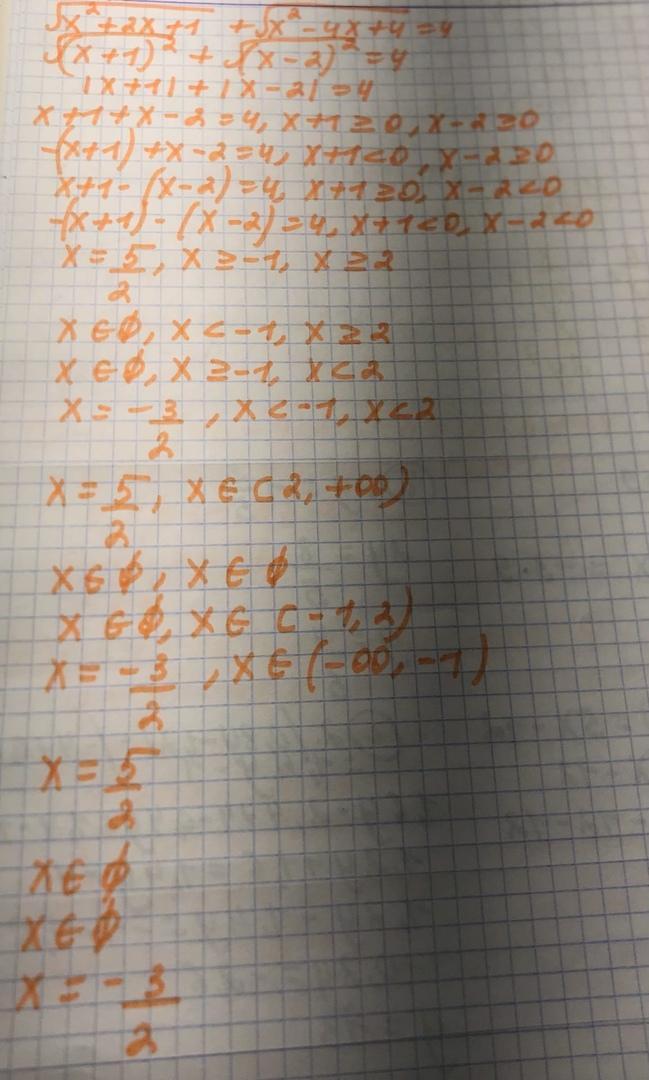 √x² + 2x + 1 + √x² - 4x + 4 = 4
√(x+1)² + √(x-2)² = 4
|x+1| + |x-2| = 4
x+1+x-2=4, x+1≥0, x-2≥0
-(x+1)+x-2=4, x+1<0, x-2≥0
x+1-(x-2)=4, x+1≥0, x-2<0
-(x+1)-(x-2)=4, x+1<0, x-2<0
x = 5/2, x≥-1, x≥2
x∈∅, x<-1, x≥2
x∈∅, x≥-1, x<2
x = -3/2, x<-1, x<2
x = 5/2, x∈[2, +∞)
x∈∅, x∈∅
x∈∅, x∈[-1, 2)
x = -3/2, x∈(-∞, -1)
x = 5/2
x∈∅
x∈∅
x = -3/2